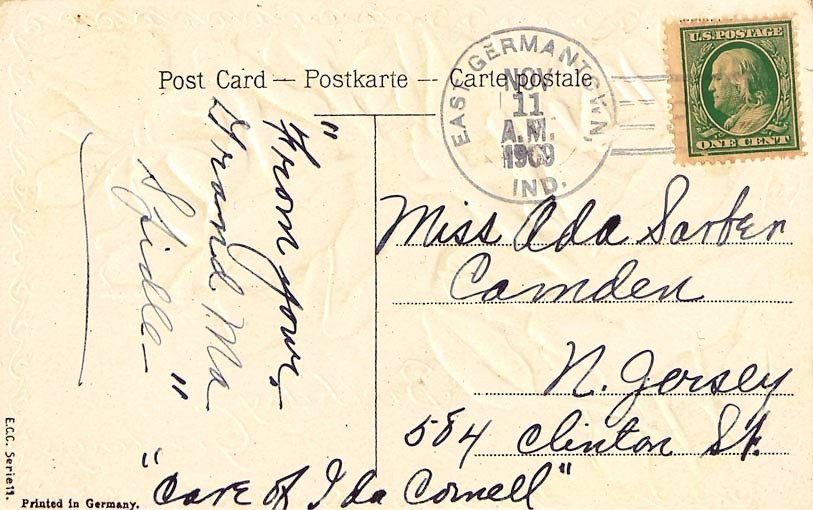 Post Card — Postkarte — Carte postale
EAST GERMANTOWN,
NOV
11
A.M.
1909
IND.
U.S. POSTAGE
ONE CENT
"From your
Grand Ma
"
Miss Ada Sarber
Camden
N. Jersey
584 Clinton St.
"Care of Ida Cornell"
E.C.C. Serie 11.
Printed in Germany.